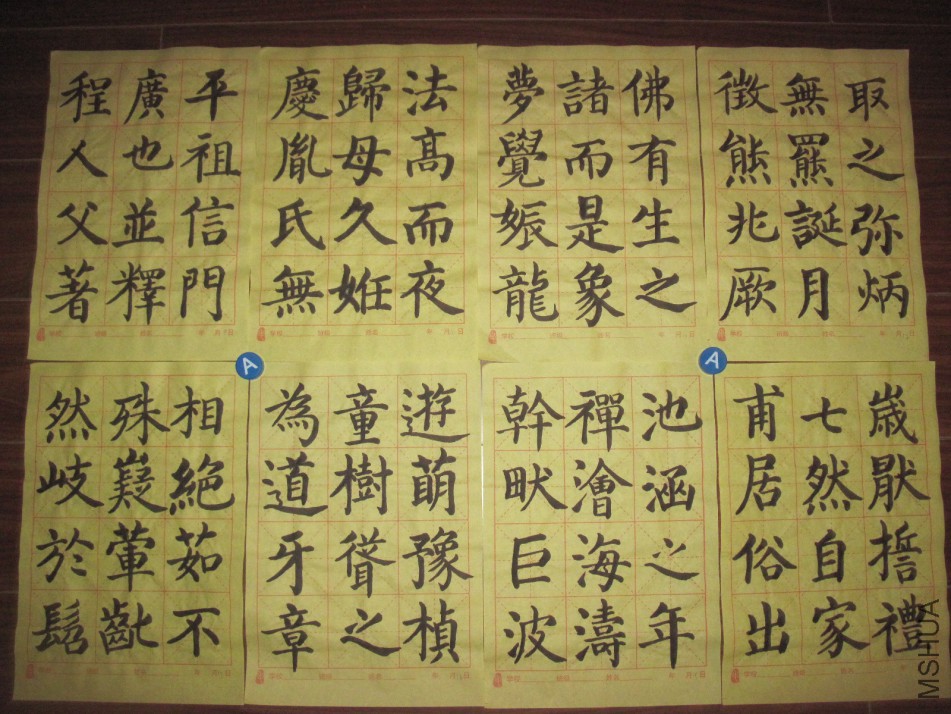 程廣平
人也祖
父並信
著釋門
慶歸法
胤母高
氏久而
無姙夜
夢諸佛
覺而有
娠是生
龍象之
徵無取
熊羆之
兆誕弥
厥月炳
然殊相
岐嶷絕
於葷茹
髫齔不
為童遊
道樹萌
牙聳豫
章之楨
幹禪池
畎澮涵
巨海之
波濤年
甫七歲
居然厭
俗自誓
出家禮
A
A
MSHUA